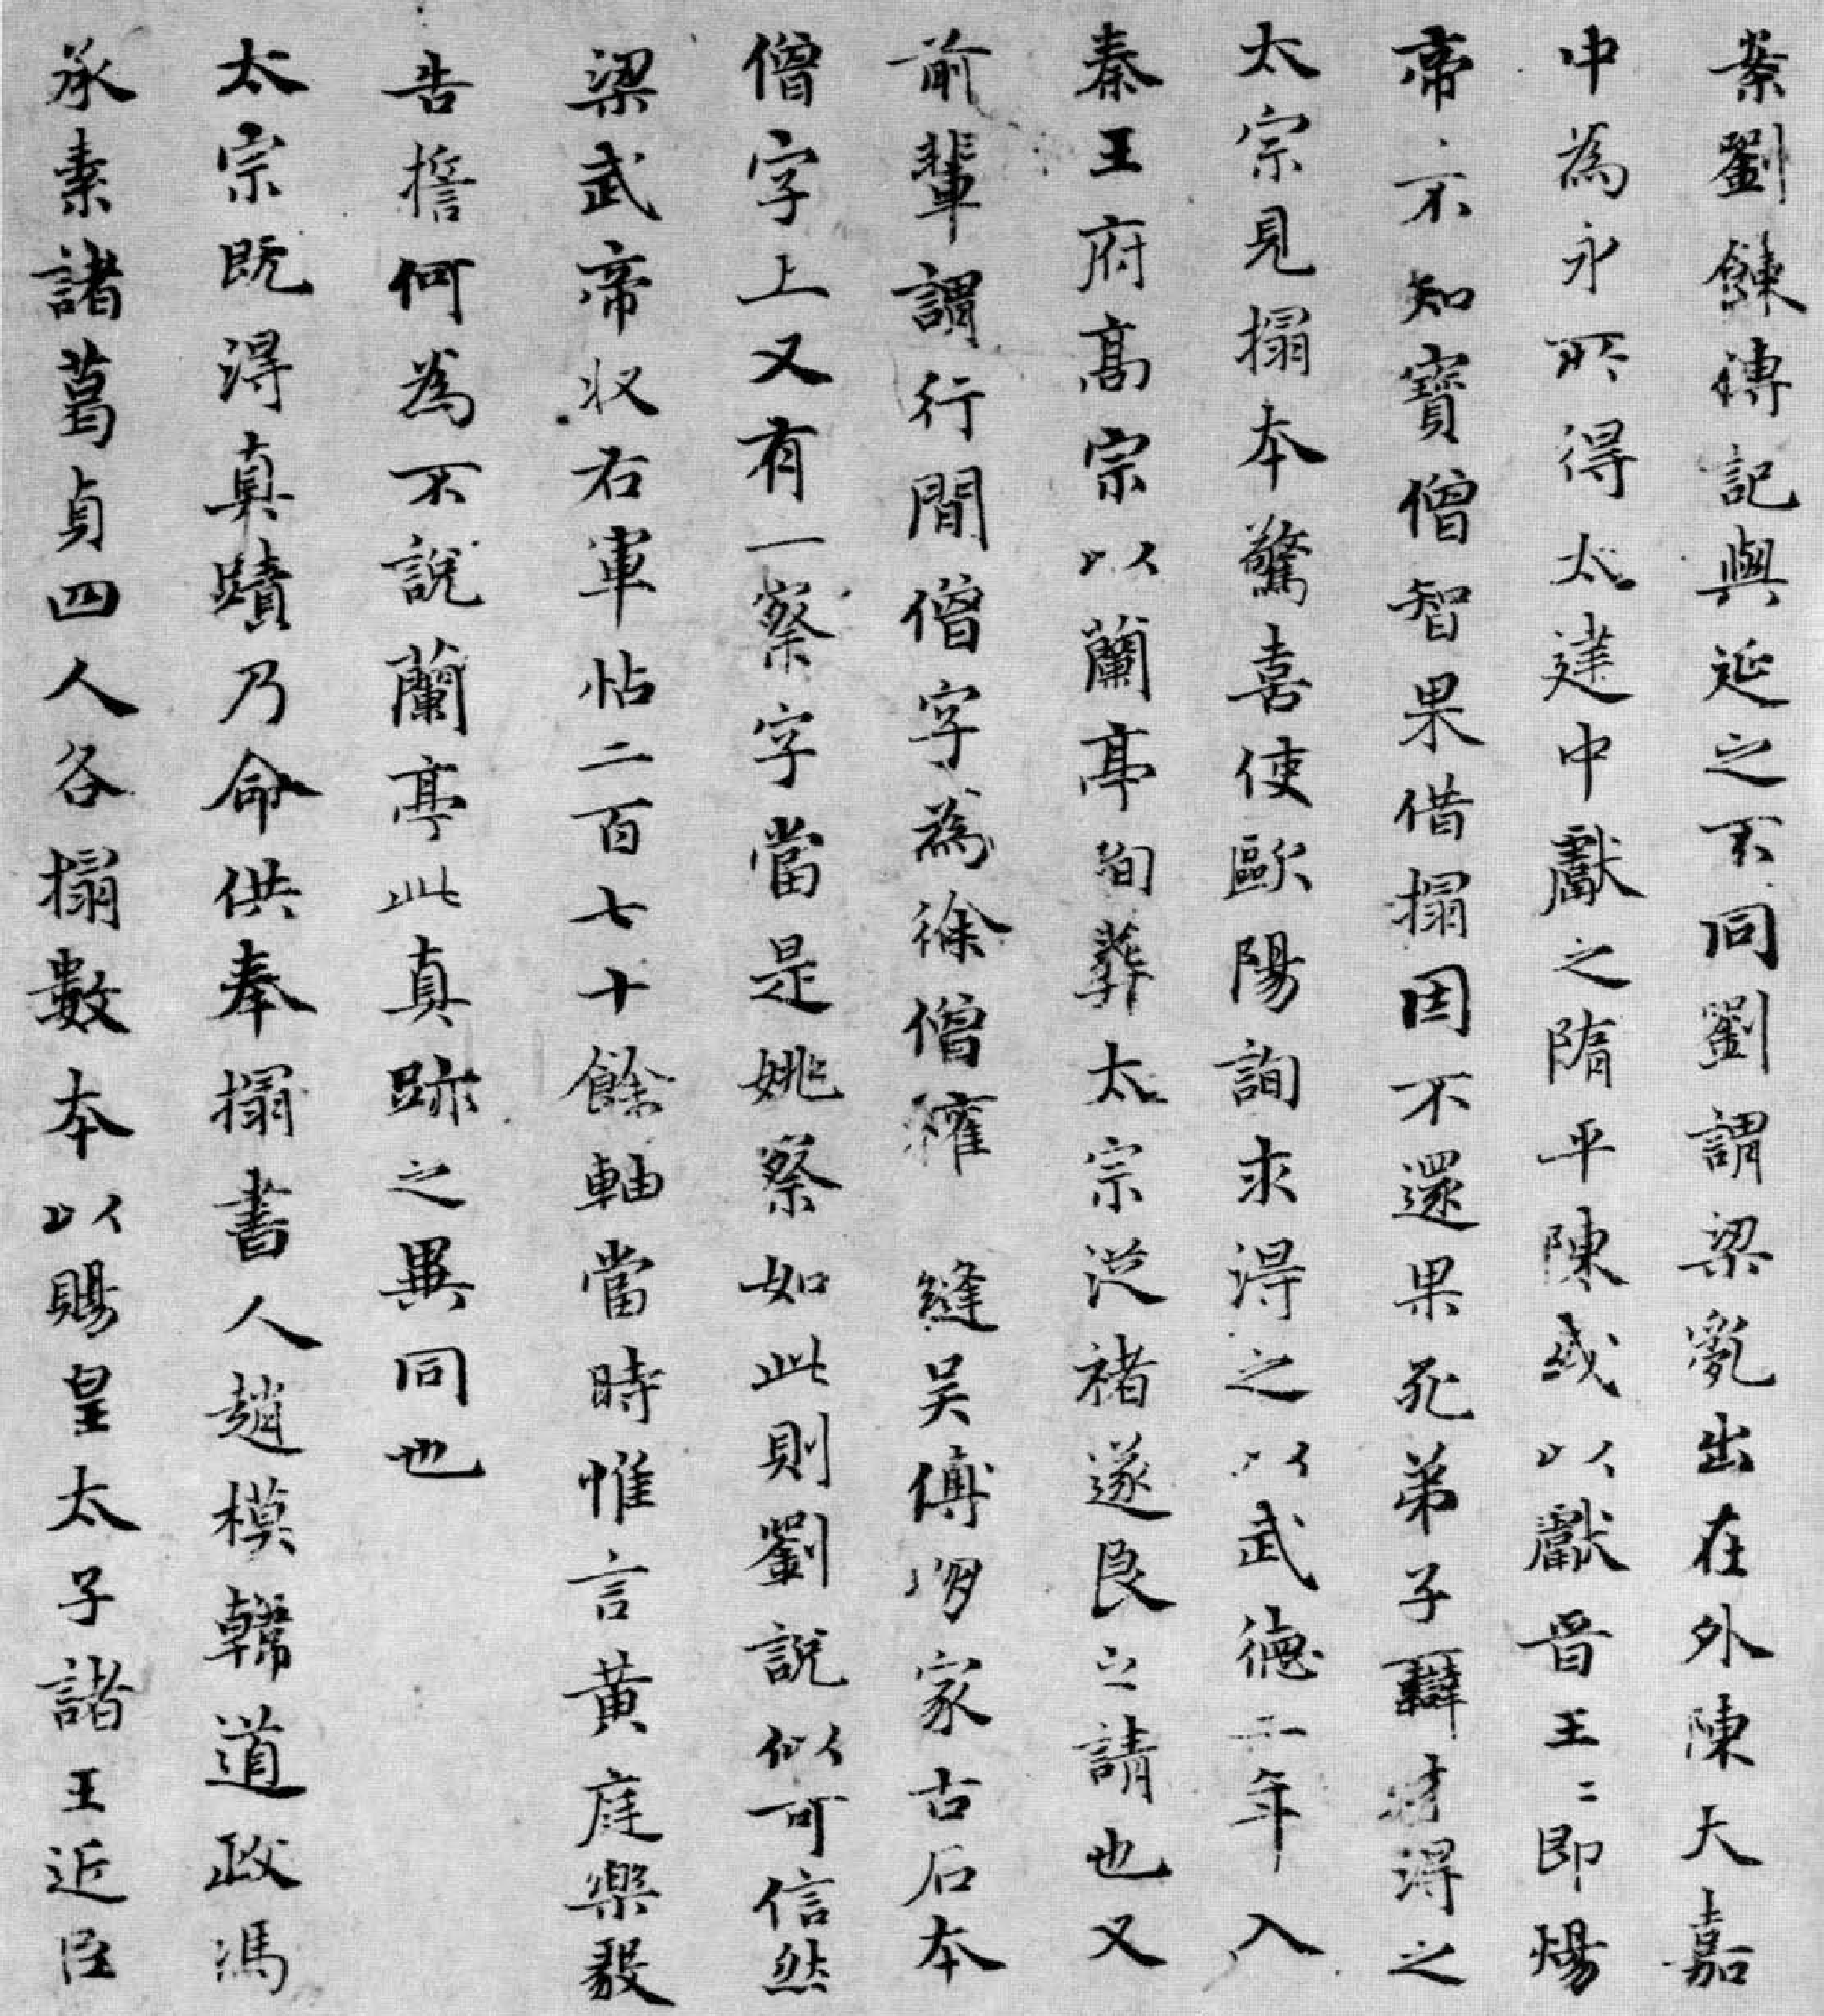 案劉餗傳記與延之不同劉謂梁亂出在外陳大嘉
中為永所得太建中獻之隋平陳或以獻晉王〻即煬
帝〻不知寶僧智果借搨因不還果死弟子辯才得之
太宗見搨本驚喜使歐陽詢求得之以武德二年入
秦王府高宗以蘭亭殉葬太宗從褚遂良之請也又
前輩謂行間僧字為徐僧權縫吳傅朋家古石本
僧字上又有一察字當是姚察如此則劉說似可信然
梁武帝收右軍帖二百七十餘軸當時惟言黃庭樂毅
告誓何為不說蘭亭此真跡之異同也
太宗既得真蹟乃命供奉搨書人趙模韓道政馮
承素諸葛貞四人各搨數本以賜皇太子諸王近臣